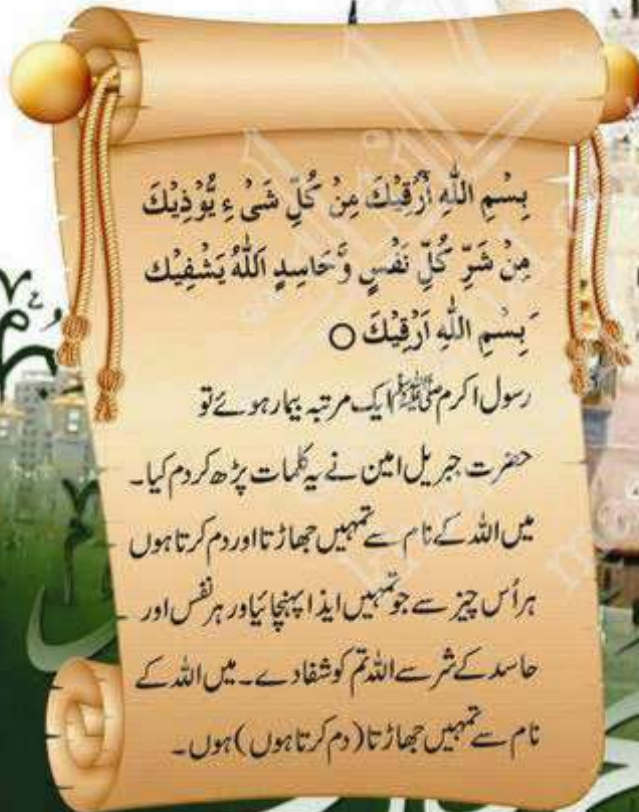 بِسْمِ اللّٰهِ اَرْقِيْكَ مِنْ كُلِّ شَىْءٍ يُّؤْذِيْكَ
مِنْ شَرِّ كُلِّ نَفْسٍ وَّحَاسِدٍ اَللّٰهُ يَشْفِيْك
َبِسْمِ اللّٰهِ اَرْقِيْكَ ○
رسول اکرم ﷺ ایک مرتبہ بیمار ہوئے تو
حضرت جبریل امین نے یہ کلمات پڑھ کر دم کیا۔
میں اللہ کے نام سے تمہیں جھاڑتا اور دم کرتا ہوں
ہر اُس چیز سے جو تمہیں ایذا پہنچائیاور ہر نفس اور
حاسد کے شر سے اللہ تم کو شفا دے۔ میں اللہ کے
نام سے تمہیں جھاڑتا (دم کرتا ہوں) ہوں۔